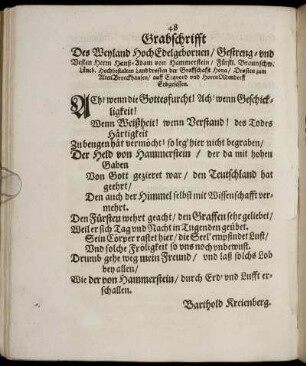 48
Grabschrifft
Des Weyland HochEdelgebornen / Gestreng- vnd
Vesten Herrn Hanß-Adam von Hammerstein / Fürstl. Braunschw.
Lüneb. Hochbestalten Landdrosten der Graffschafft Hoya / Drosten zum
AltenBruckhausen / auff Equord vnd HornOldendorff
Erbgesessen.
ACh / wenn die Gottesfurcht! Ach! wenn Geschick-
ligkeit!
Wenn Weißheit! wenn Verstand! des Todes
Härtigkeit
Zu beugen hät vermöcht! so leg' hier nicht begraben /
Der Held von Hammerstein / der da mit hohen
Gaben
Von Gott gezieret war / den Teutschland hat
geehrt /
Den auch der Himmel selbst mit Wissenschafft ver-
mehrt.
Den Fürsten wehrt geacht / den Graffen sehr geliebet /
Weil er sich Tag vnd Nacht in Tugenden geübet.
Sein Cörper rastet hier / die Seel' empfindet Lust /
Vnd solche Fröligkeit so vns noch vnbewust.
Drumb gehe weg mein Freund / vnd laß solchs Lob
bey allen /
Wie der von Hammerstein / durch Erd' vnd Lufft er-
schallen.
Barthold Kreienberg.